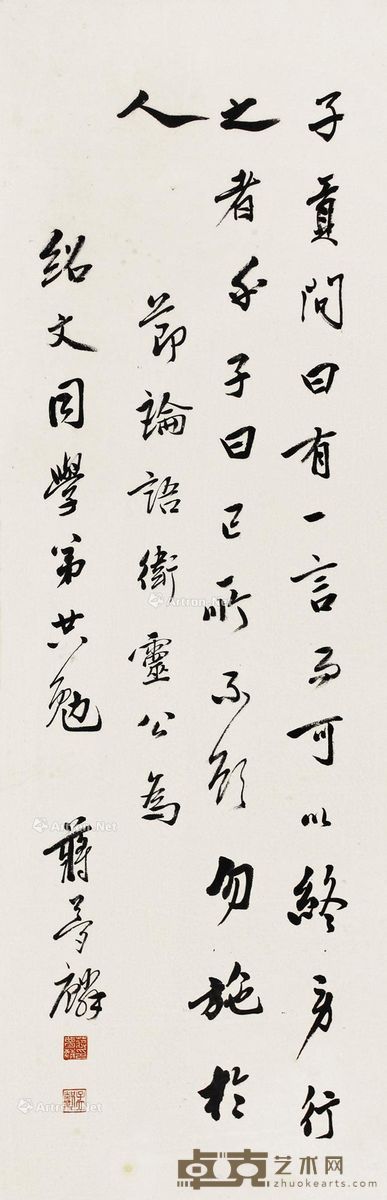 子貢問曰有一言而可以終身行
之者乎子曰己所不欲勿施於
人
節論語衛靈公為
紹文同學弟共勉
蔣夢麟
Artron.Net
Artron.Net
Artron.Net
Artron.Net
卓克艺术网
zhuokearts.com